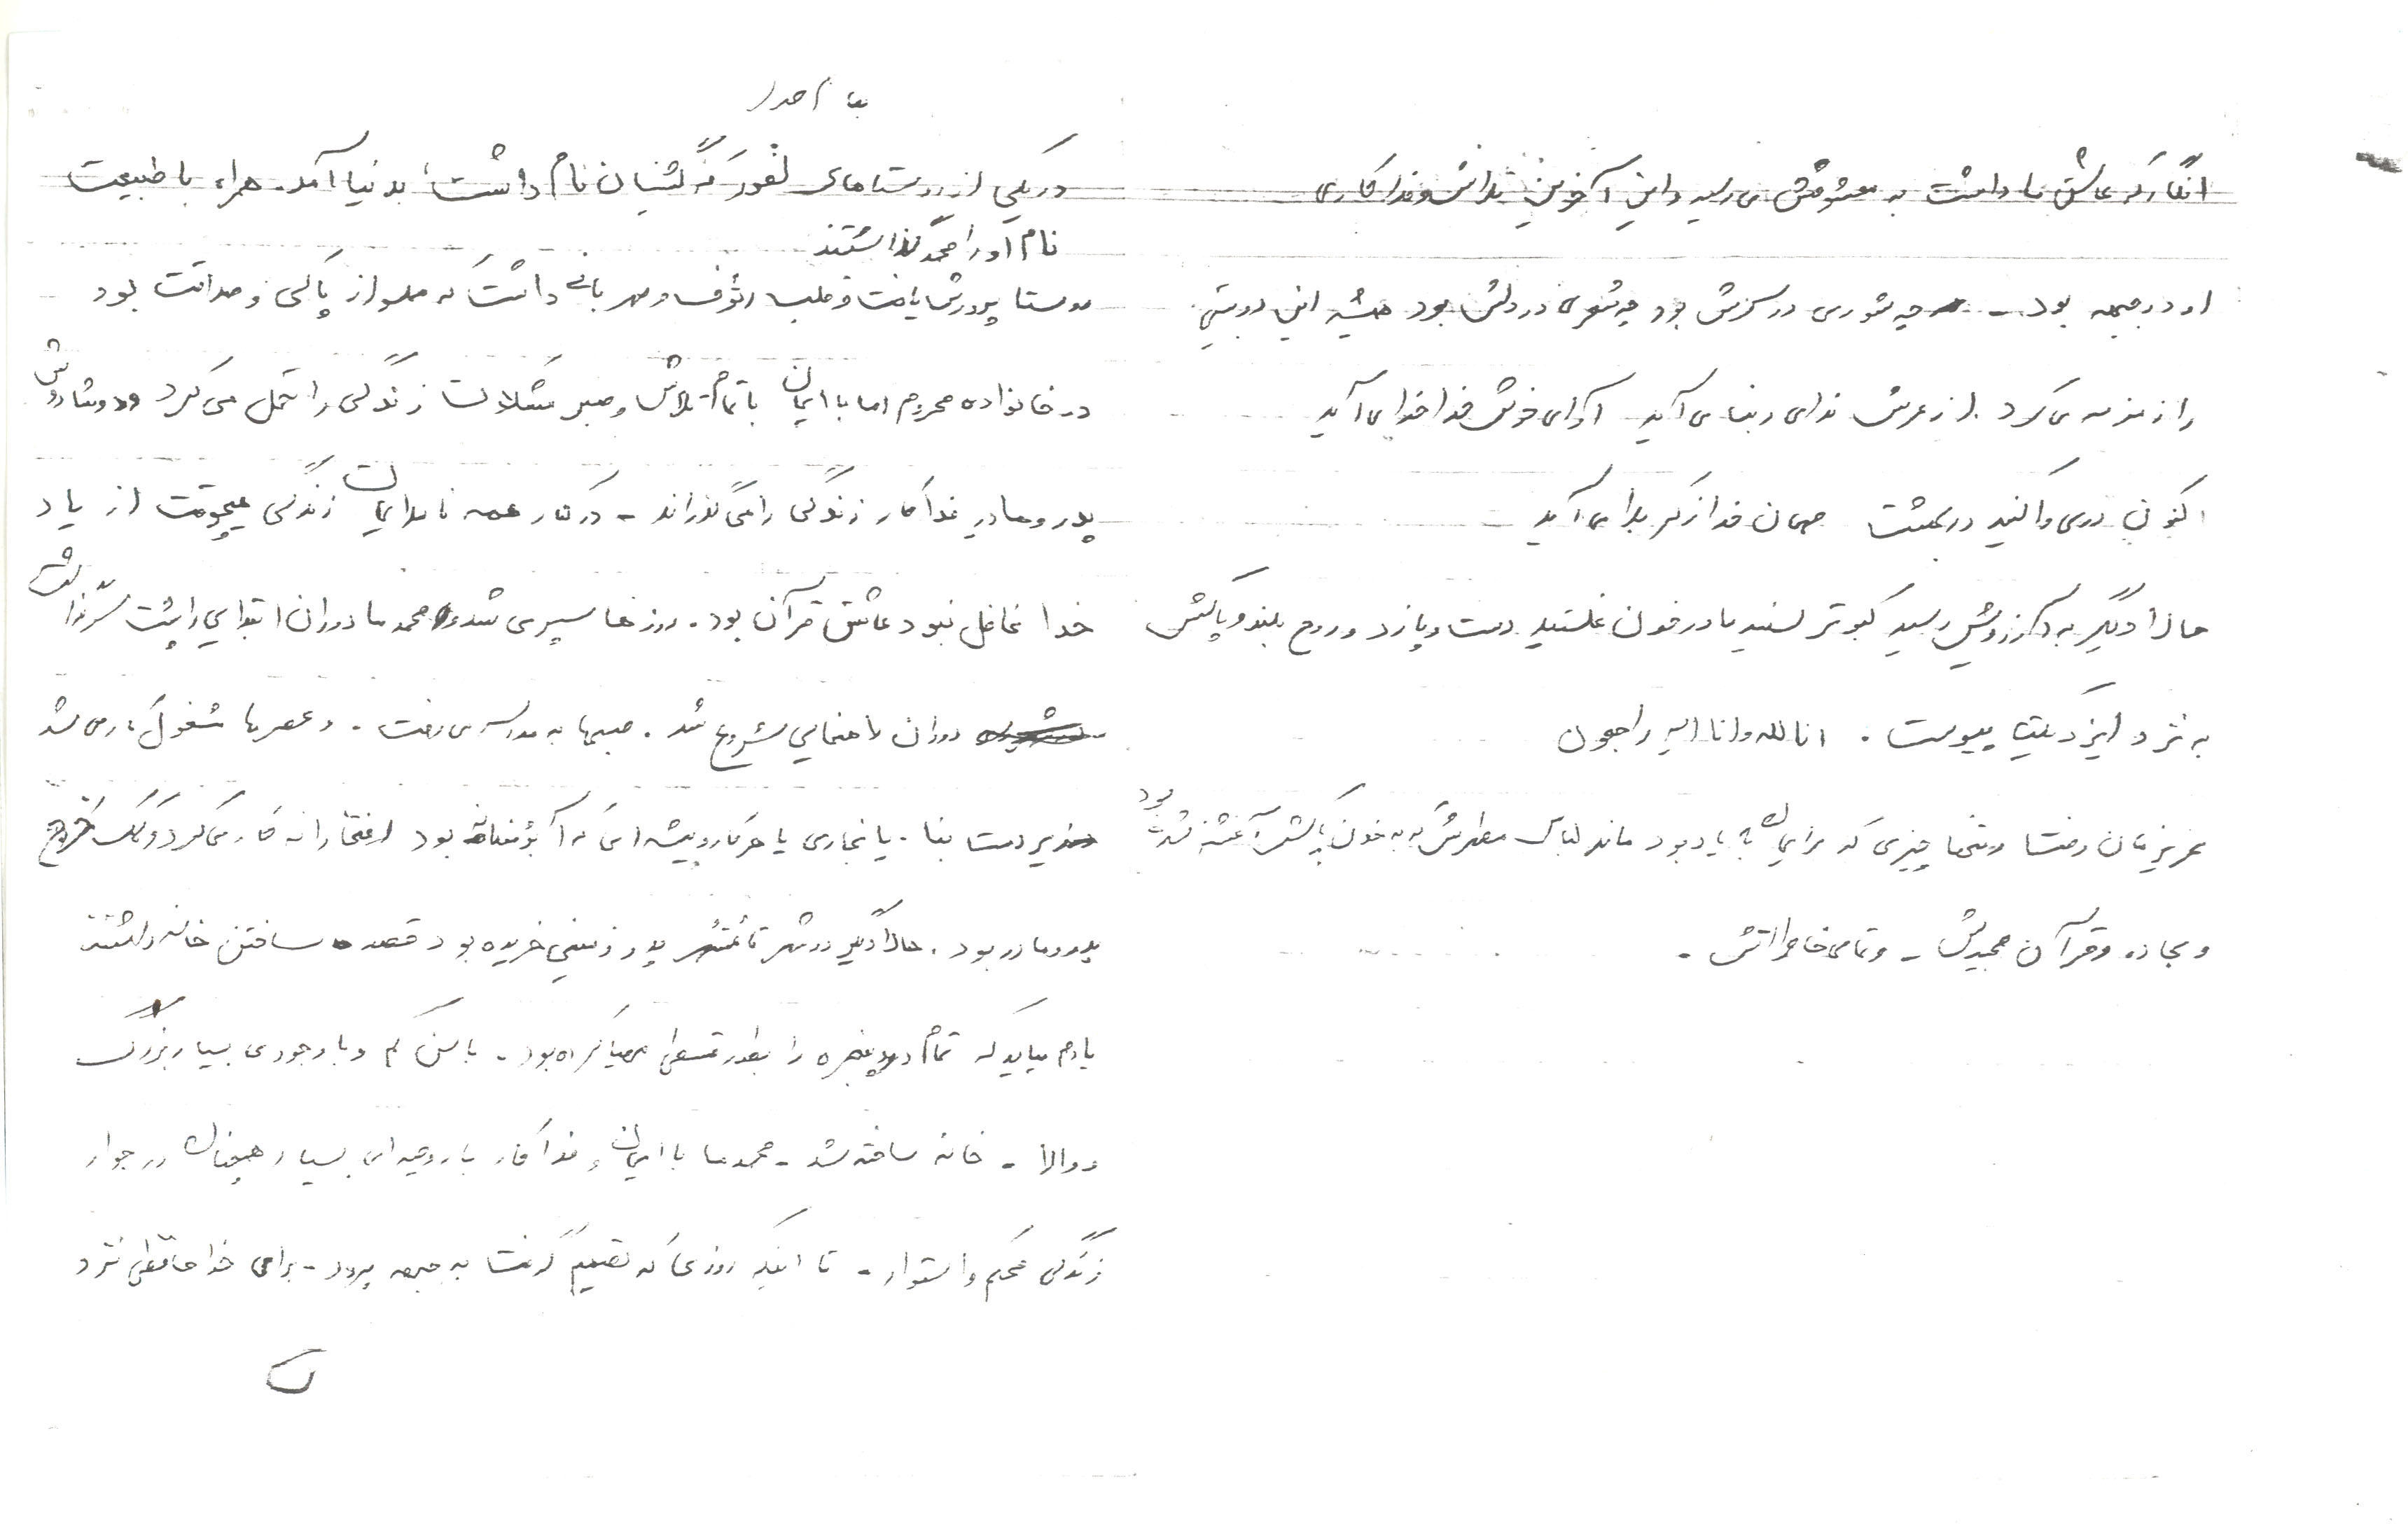 بنام خدا
در یکی از روستاهای لفور که گشنیان نام داشت، بدنیا آمد. همراه با طبیعت
نام او را محمد گذاشتند
روستا پرورش یافت و قلب رئوف و مهربانی داشت که مملو از پاکی و صداقت بود
در خانواده محروم اما با ایمان با تمام تلاش و صبر مشکلات زندگی را تحمل می کرد
پدر و مادر فداکار زندگی را می گذراند - در کنار همه ناملایمات زندگی هیچوقت از یاد
خدا غافل نبود عاشق قرآن بود. روزها سپری شد و محمد ما دوران ابتدایی را پشت سر گذاشت
دوران راهنمایی شروع شد. صبحها به مدرسه می رفت. و عصرها مشغول کار می شد
زیر دست بنا. یا نجاری یا هر کار و پیشه ای که بود افتخارانه کار می کرد و کمک خرج
پدر و مادر بود. حالا دیگر در شهر قائمشهر پدر زمینی خریده بود قصد ساختن خانه داشتند
یادم میاید که تمام در و پنجره را بطور قسطی مهیا کرده بود. با سن کم و با وجودی بسیار بزرگ
و والا - خانه ساخته شد - محمد ما با ایمان و فداکار با روحیه ای بسیار همچنان در جوار
زندگی محکم و استوار - تا اینکه روزی که تصمیم گرفت به جبهه برود - برای خداحافظی نزد
انگار که عاشق ما داشت به معشوقش می رسید و این آخرین تلاش و فداکاری
او در جبهه بود - چه شوری در سرش بود چه شعری در دلش بود همیشه این دوبیتی
را زمزمه می کرد از عرش ندای ربنا می آید آوای خوش خدا خدا می آید
اکنون دری وا کنید در بهشت مهمان خدا ز کربلا می آید
حالا دیگر به آرزویش رسید کبوتر سفید ما در خون غلتید دست و پا زد و روح بلند و پاکش
به نزد ایزد یکتا پیوست. انا لله و انا الیه راجعون
عزیزمان رفت و تنها چیزی که برایمان به یادبود ماند لباس مطهرش که به خون پاکش آغشته شده بود
و سجاده و قرآن مجیدش - و تمامی خاطراتش.